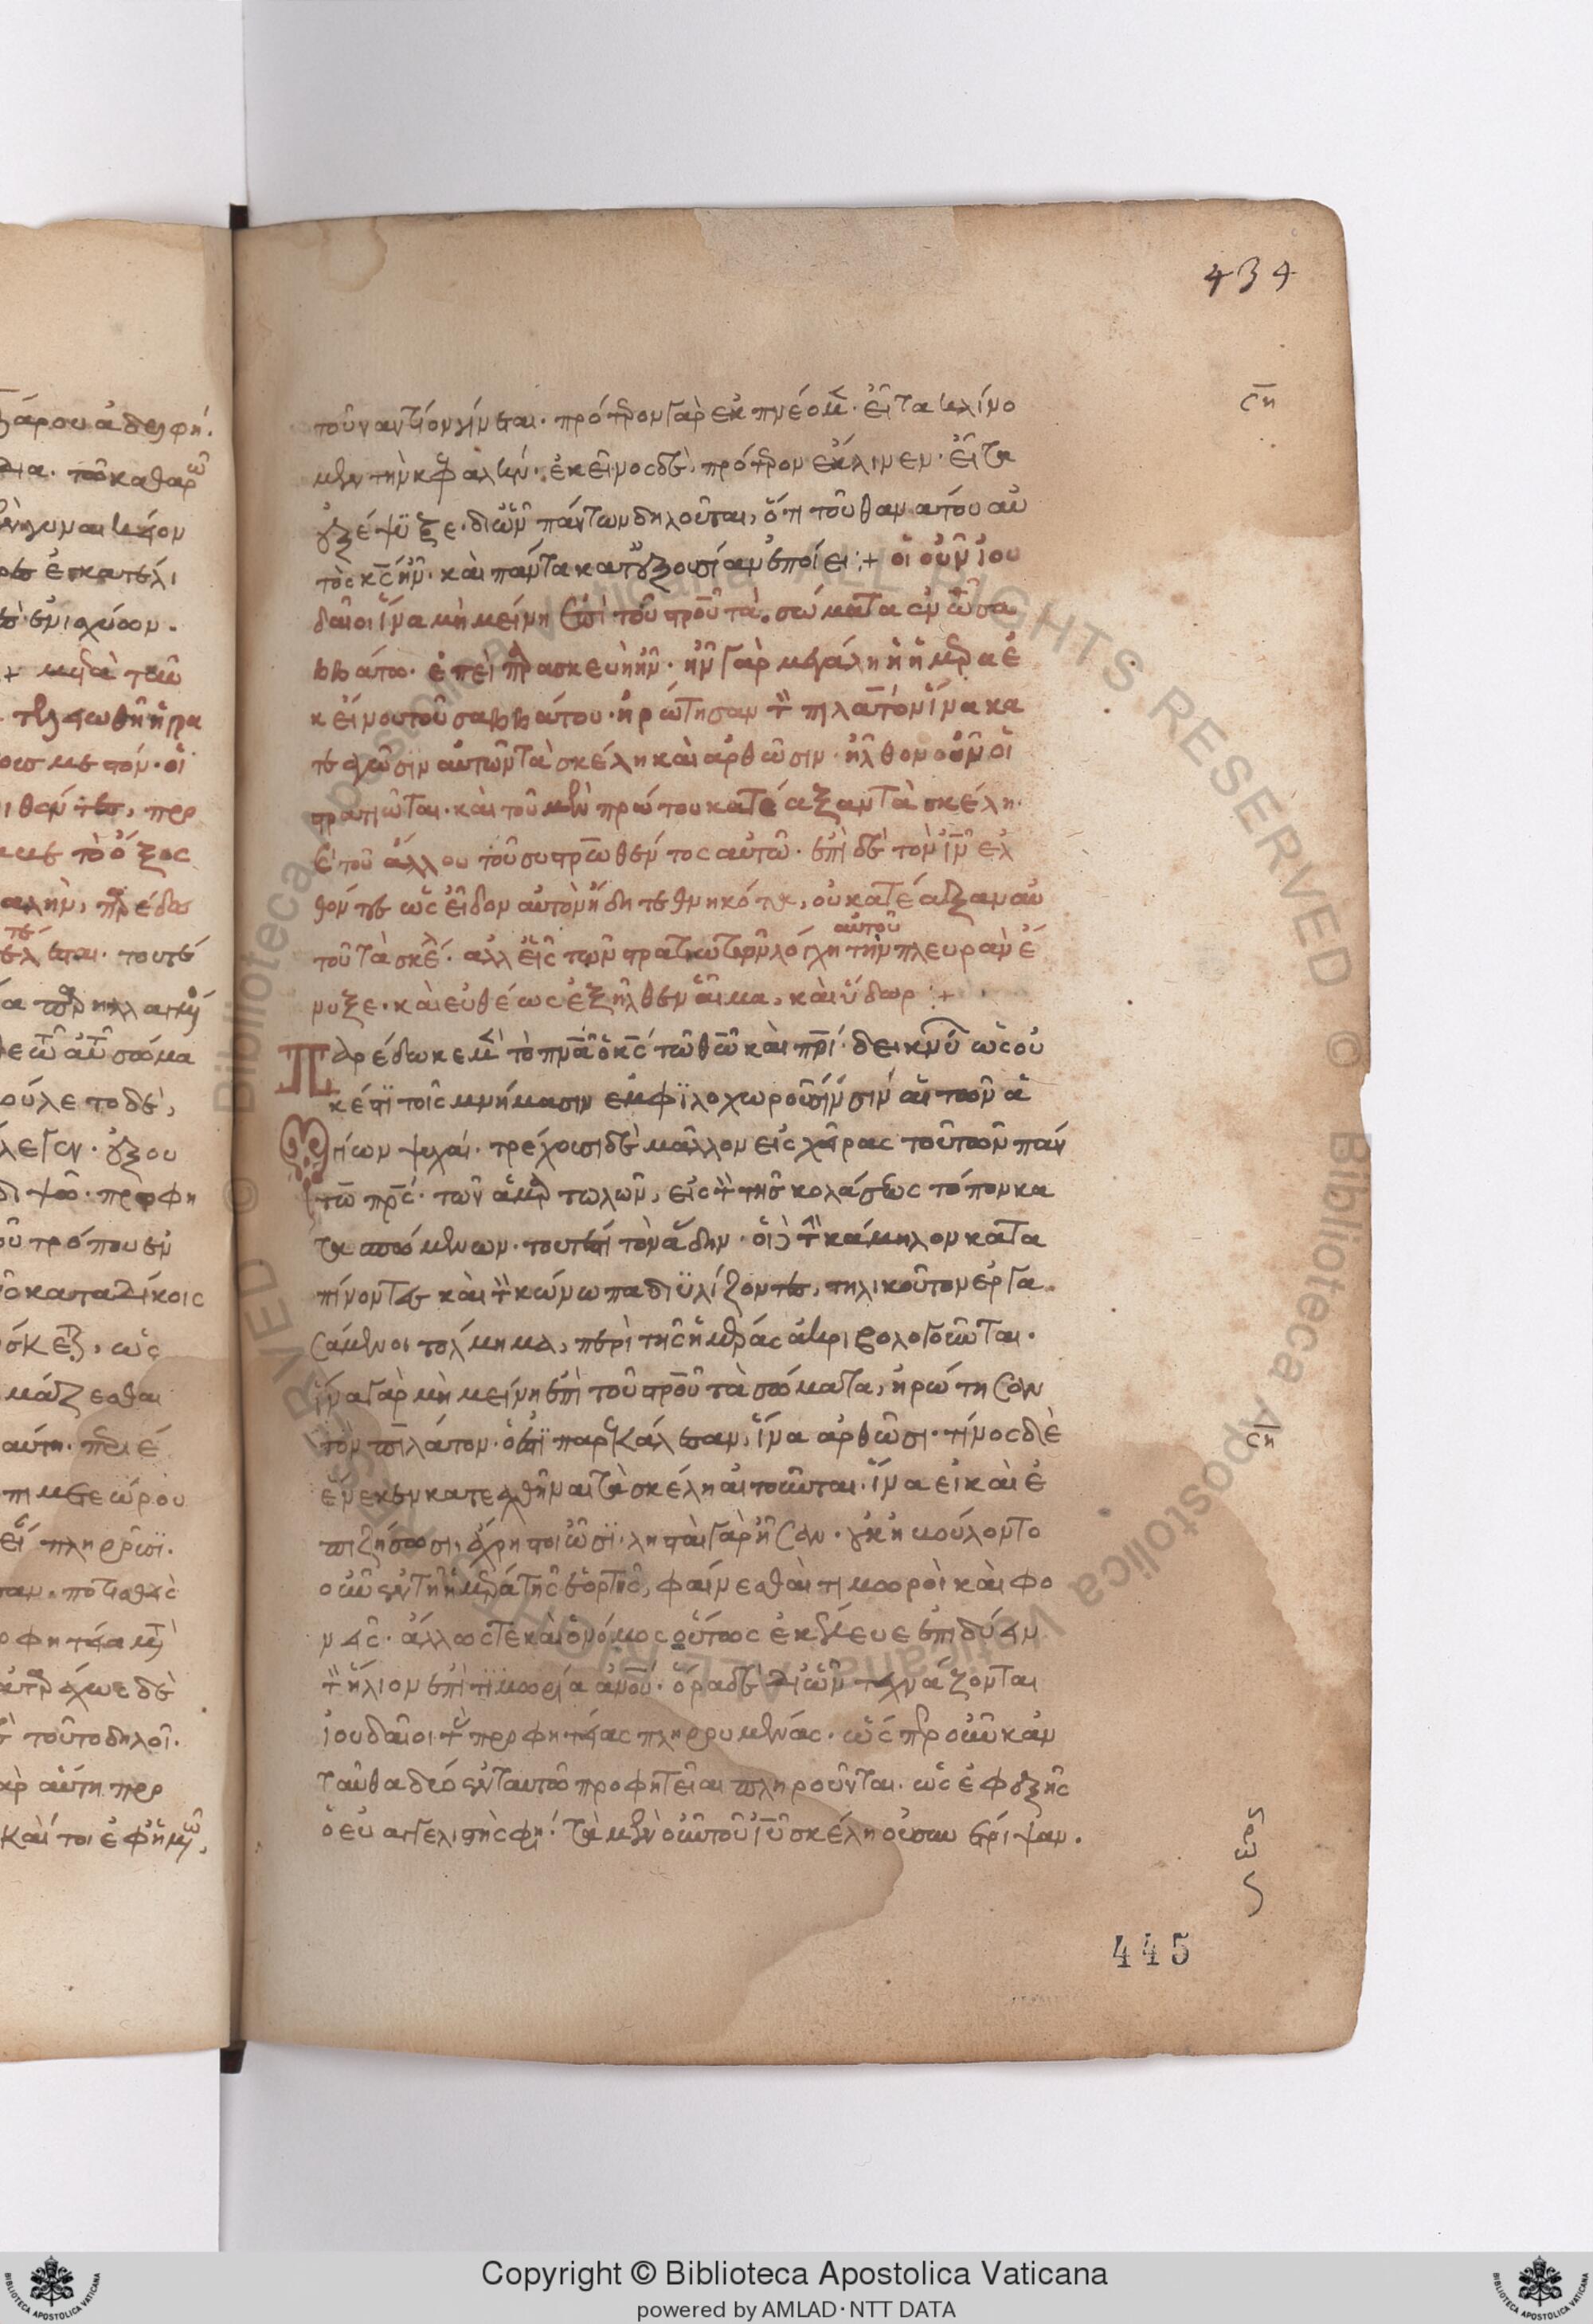 434
ση
τοὐναντίον γίνεται· πρότερον γὰρ ἐκπνέομεν· εἶτα κλίνο
μεν τὴν κεφαλήν· ἐκεῖνος δὲ, πρότερον ἔκλινεν· εἶτα
ἐξέψυξε· διὧν πάντων δηλοῦται, ὅτι τοῦ θανάτου αὐ
τὸς κς ἦν· καὶ πάντα κατ' ἐξουσίαν ἐποίει :+ οἱ οὖν ἰου
δαῖοι ἵνα μὴ μείνη ἐπὶ τοῦ στροῦ τὰ σώματα ἐν τῶ σα
ββάτω· ἐπεὶ παρασκευὴ ἦν· ἦν γὰρ μεγάλη ἡ ἡμέρα ἐ
κείνου τοῦ σαββάτου· ἠρώτησαν τὸν πιλάτον ἵνα κα
τεαγῶσιν αὐτῶν τὰ σκέλη καὶ ἀρθῶσιν· ἦλθον οὖν οἱ
στρατιῶται· καὶ τοῦ μὲν πρώτου κατέαξαν τὰ σκέλη·
καὶ τοῦ ἄλλου τοῦ συστρωθέντος αὐτῶ· ἐπὶ δὲ τὸν ἰν ἐλ
θόντες ὡς εἶδον αὐτὸν ἤδη τεθνηκότα, οὐ κατέαξαν αὐ
τοῦ τὰ σκέλη· ἀλλ' εἷς τῶν στρατιωτῶν λόγχη αὐτοῦ τὴν πλευρὰν ἔ
νυξε· καὶ εὐθέως ἐξῆλθεν αἷμα, καὶ ὕδωρ :+
Παρέδωκε μὲν τὸ πνα ὁ κς τῶ θῶ καὶ πρί· δεικνὺς ὡς οὐ
κέτι τοῖς μνήμασιν ἐμφιλοχωροῦσιν αἱ τῶν ἁ
γίων ψυχαί· τρέχουσι δὲ μᾶλλον εἰς χεῖρας τοῦ τῶν πάν
των πρς· τῶν ἁμαρτωλῶν, εἰς τὸν τῆς κολάσεως τόπον κα
ταγομένων· τουτέστι τὸν ἅδην· οἱ δὲ τὴν κάμηλον κατα
πίνοντες καὶ τὸν κώνωπα διϋλίζοντες, τηλικοῦτον ἐργα
σάμενοι τόλμημα, περὶ τῆς ἡμέρας ἀκριβολογοῦνται·
ἵνα γὰρ μὴ μείνη ἐπὶ τοῦ στροῦ τὰ σώματα, ἠρώτησαν
τὸν πιλάτον· ὅ ἐστι παρεκάλεσαν, ἵνα ἀρθῶσι· τίνος δὲ
ἕνεκεν κατεαχθῆναι τὰ σκέλη αἰτοῦνται· ἵνα εἰ καὶ ἐ
πιζήσωσι, ἄχρηστοι ὦσι· λησταὶ γὰρ ἦσαν· οὐκ ἠβούλοντο
οὖν ἐν τῆ ἡμέρα τῆς ἑορτῆς, φαίνεσθαι τιμωροὶ καὶ φο
νεῖς· ἄλλως τε καὶ ὁ νόμος οὕτως ἐκέλευε μὴ ἐπιδύειν
τὸν ἥλιον ἐπὶ τιμωρία ἀνου· ὅρα δὲ διὧν τεχνάζονται
ἰουδαῖοι τὰς προφητείας πληρουμένας· ὥσπερ οὖν κἀν
ταῦθα δύο ἐν ταυτῶ προφητεῖαι πληροῦνται· ὡς ἐφεξῆς
ὁ εὐαγγελιστής φησί· τὰ μὲν οὖν τοῦ ἰυ σκέλη οὐ συνέτριψαν·
ση
445